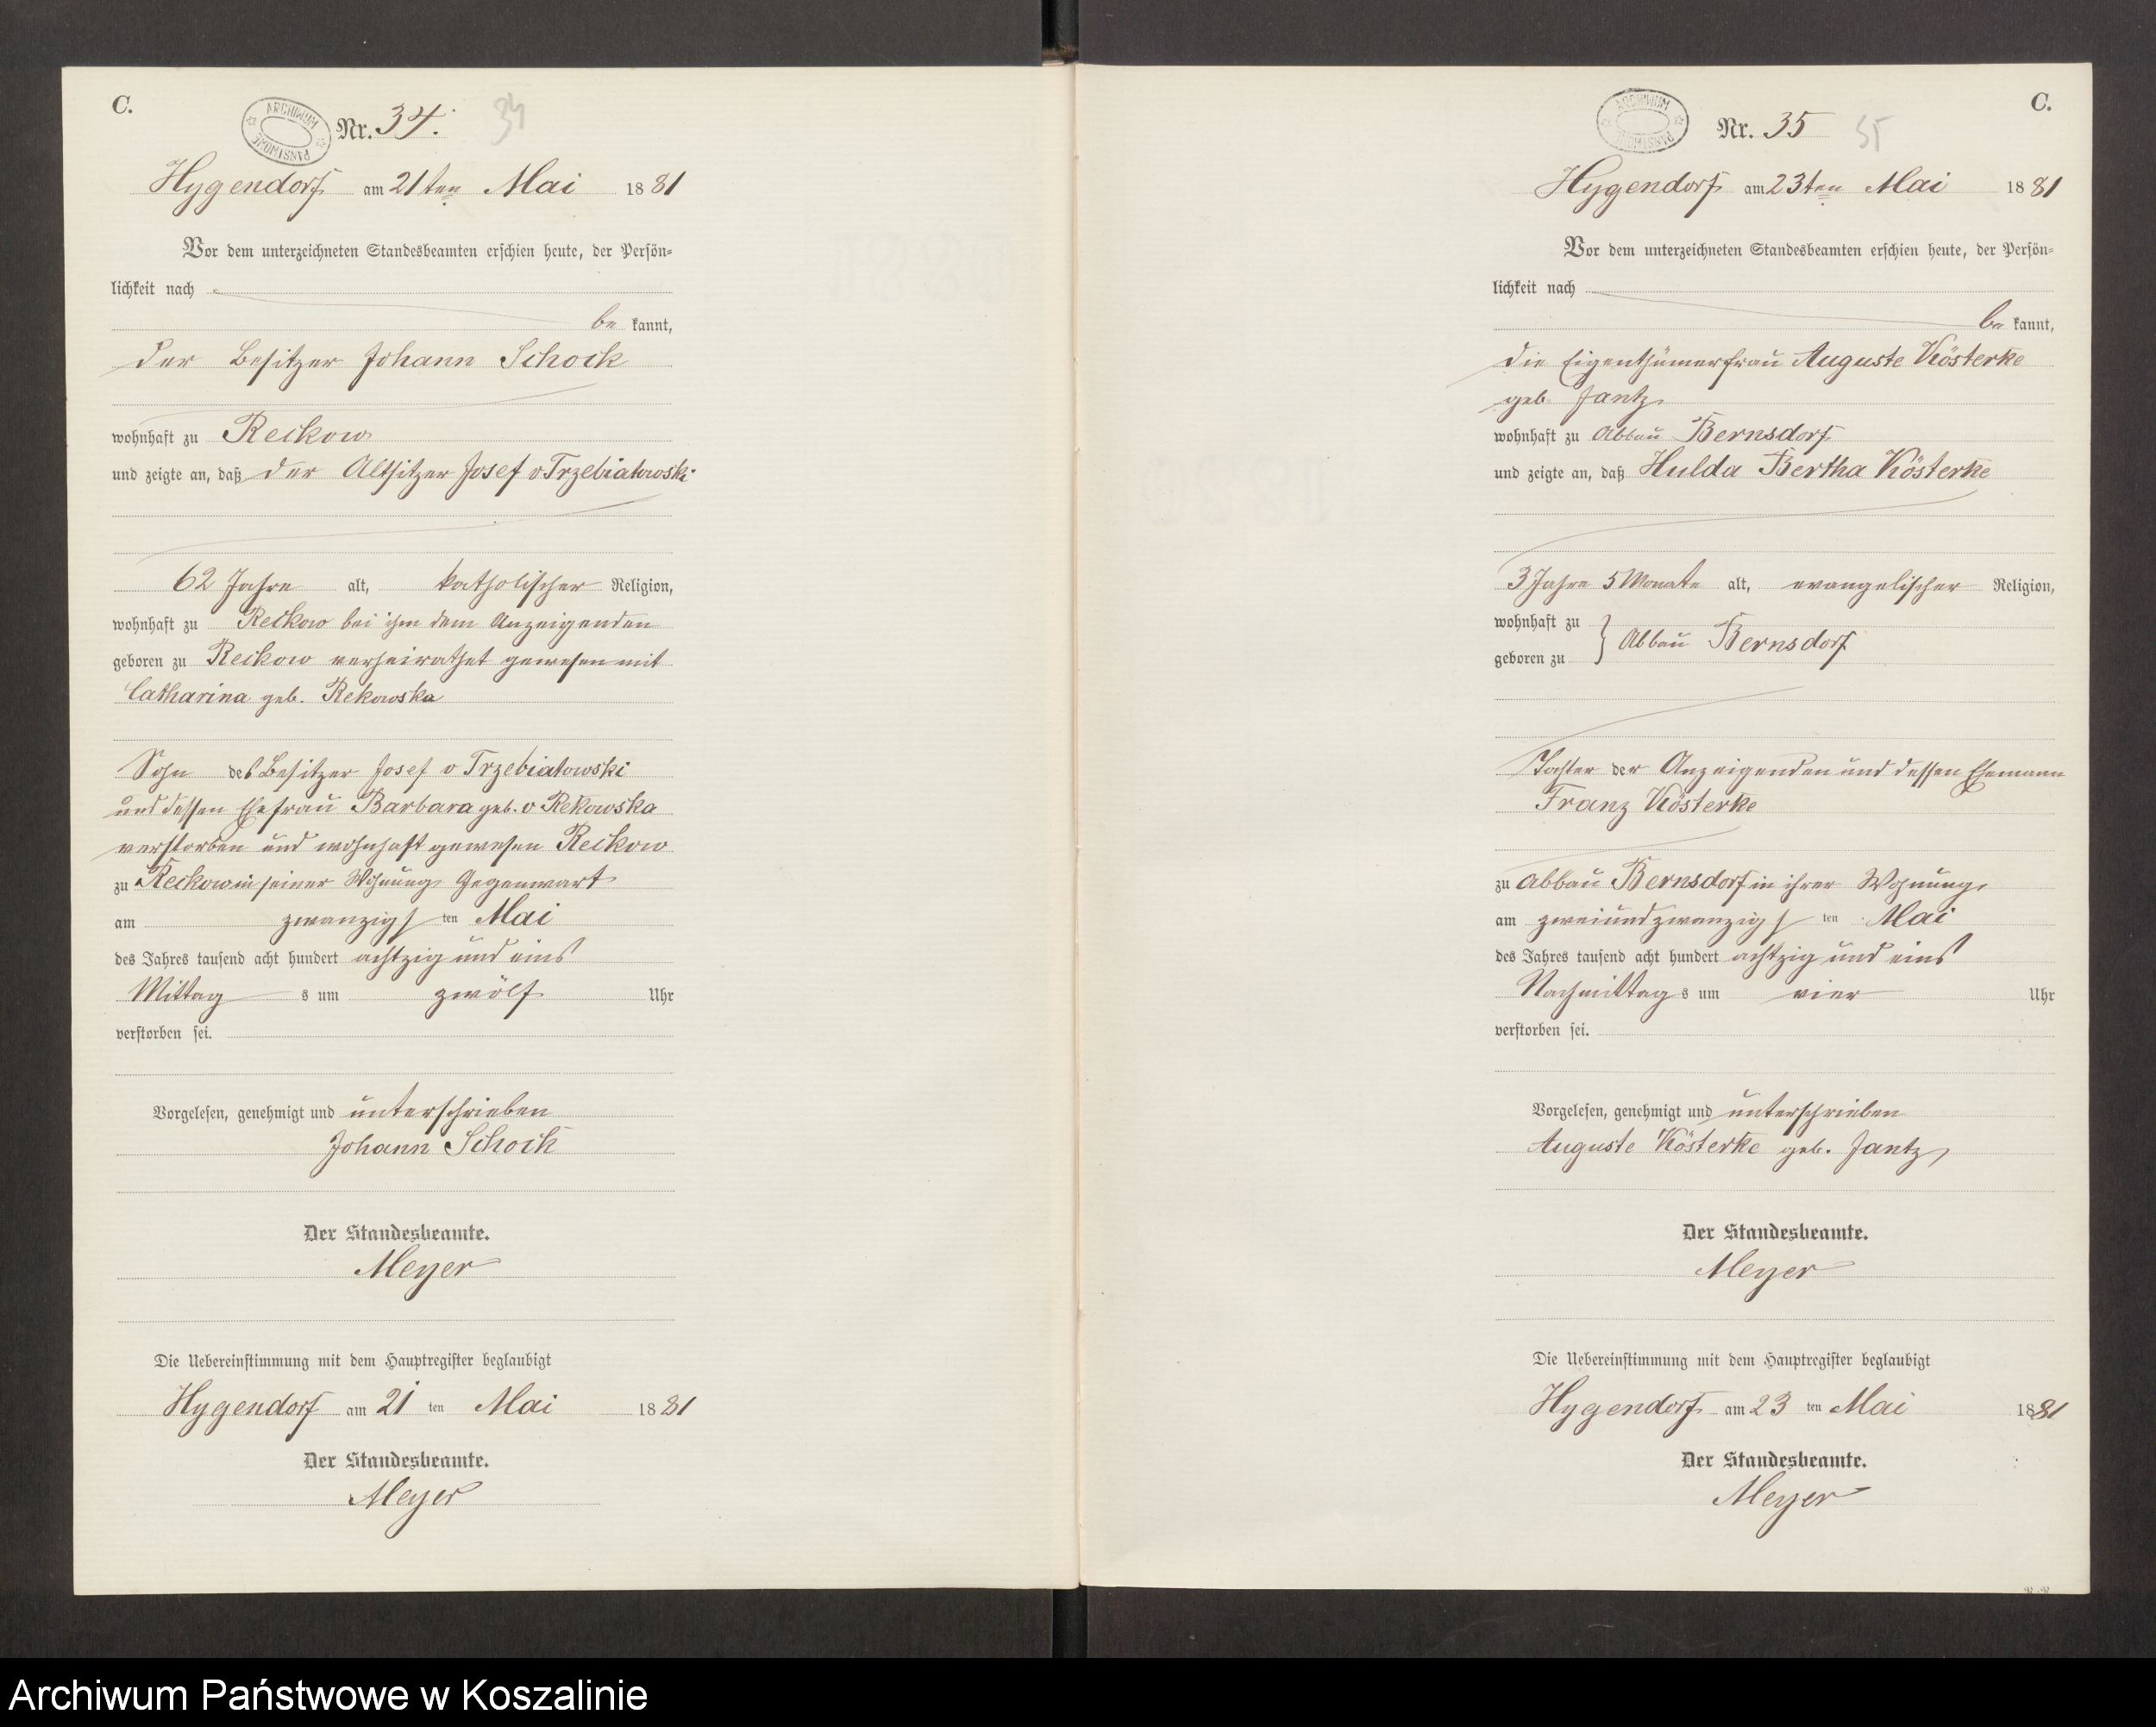 C.
ARCHIWUM PAŃSTWOWE
Nr. 34. 34
Hygendorf am 21ten Mai 1881
Vor dem unterzeichneten Standesbeamten erschien heute, der Persön-
lichkeit nach
be kannt,
der Besitzer Johann Schock
wohnhaft zu Reckow
und zeigte an, daß der Altsitzer Josef v Trzebiatowski
62 Jahre alt, katholischer Religion,
wohnhaft zu Reckow bei ihm dem Anzeigenden
geboren zu Reckow verheirathet gewesen mit
Catharina geb. Rekowska
Sohn des Besitzer Josef v Trzebiatowski
und dessen Ehefrau Barbara geb. v Rekowska
verstorben und wohnhaft gewesen Reckow
zu Reckow in seiner Wohnung Gegenwart
am zwanzigs ten Mai
des Jahres tausend acht hundert achtzig und eins
Mittag s um zwölf Uhr
verstorben sei.
Vorgelesen, genehmigt und unterschrieben
Johann Schock
Der Standesbeamte.
Meyer
Die Uebereinstimmung mit dem Hauptregister beglaubigt
Hygendorf am 21 ten Mai 1881
Der Standesbeamte.
Meyer
C.
ARCHIWUM PAŃSTWOWE
Nr. 35 35
Hygendorf am 23ten Mai 1881
Vor dem unterzeichneten Standesbeamten erschien heute, der Persön-
lichkeit nach
be kannt,
die Eigenthümerfrau Auguste Kösterke
geb Jantz
wohnhaft zu Abbau Bernsdorf
und zeigte an, daß Hulda Bertha Kösterke
3 Jahre 5 Monate alt, evangelischer Religion,
wohnhaft zu
geboren zu } Abbau Bernsdorf
Tochter der Anzeigenden und dessen Ehemann
Franz Kösterke
zu Abbau Bernsdorf in ihrer Wohnung
am zweiundzwanzigs ten Mai
des Jahres tausend acht hundert achtzig und eins
Nachmittag s um vier Uhr
verstorben sei.
Vorgelesen, genehmigt und unterschrieben
Auguste Kösterke geb. Jantz
Der Standesbeamte.
Meyer
Die Uebereinstimmung mit dem Hauptregister beglaubigt
Hygendorf am 23 ten Mai 1881
Der Standesbeamte.
Meyer
Archiwum Państwowe w Koszalinie